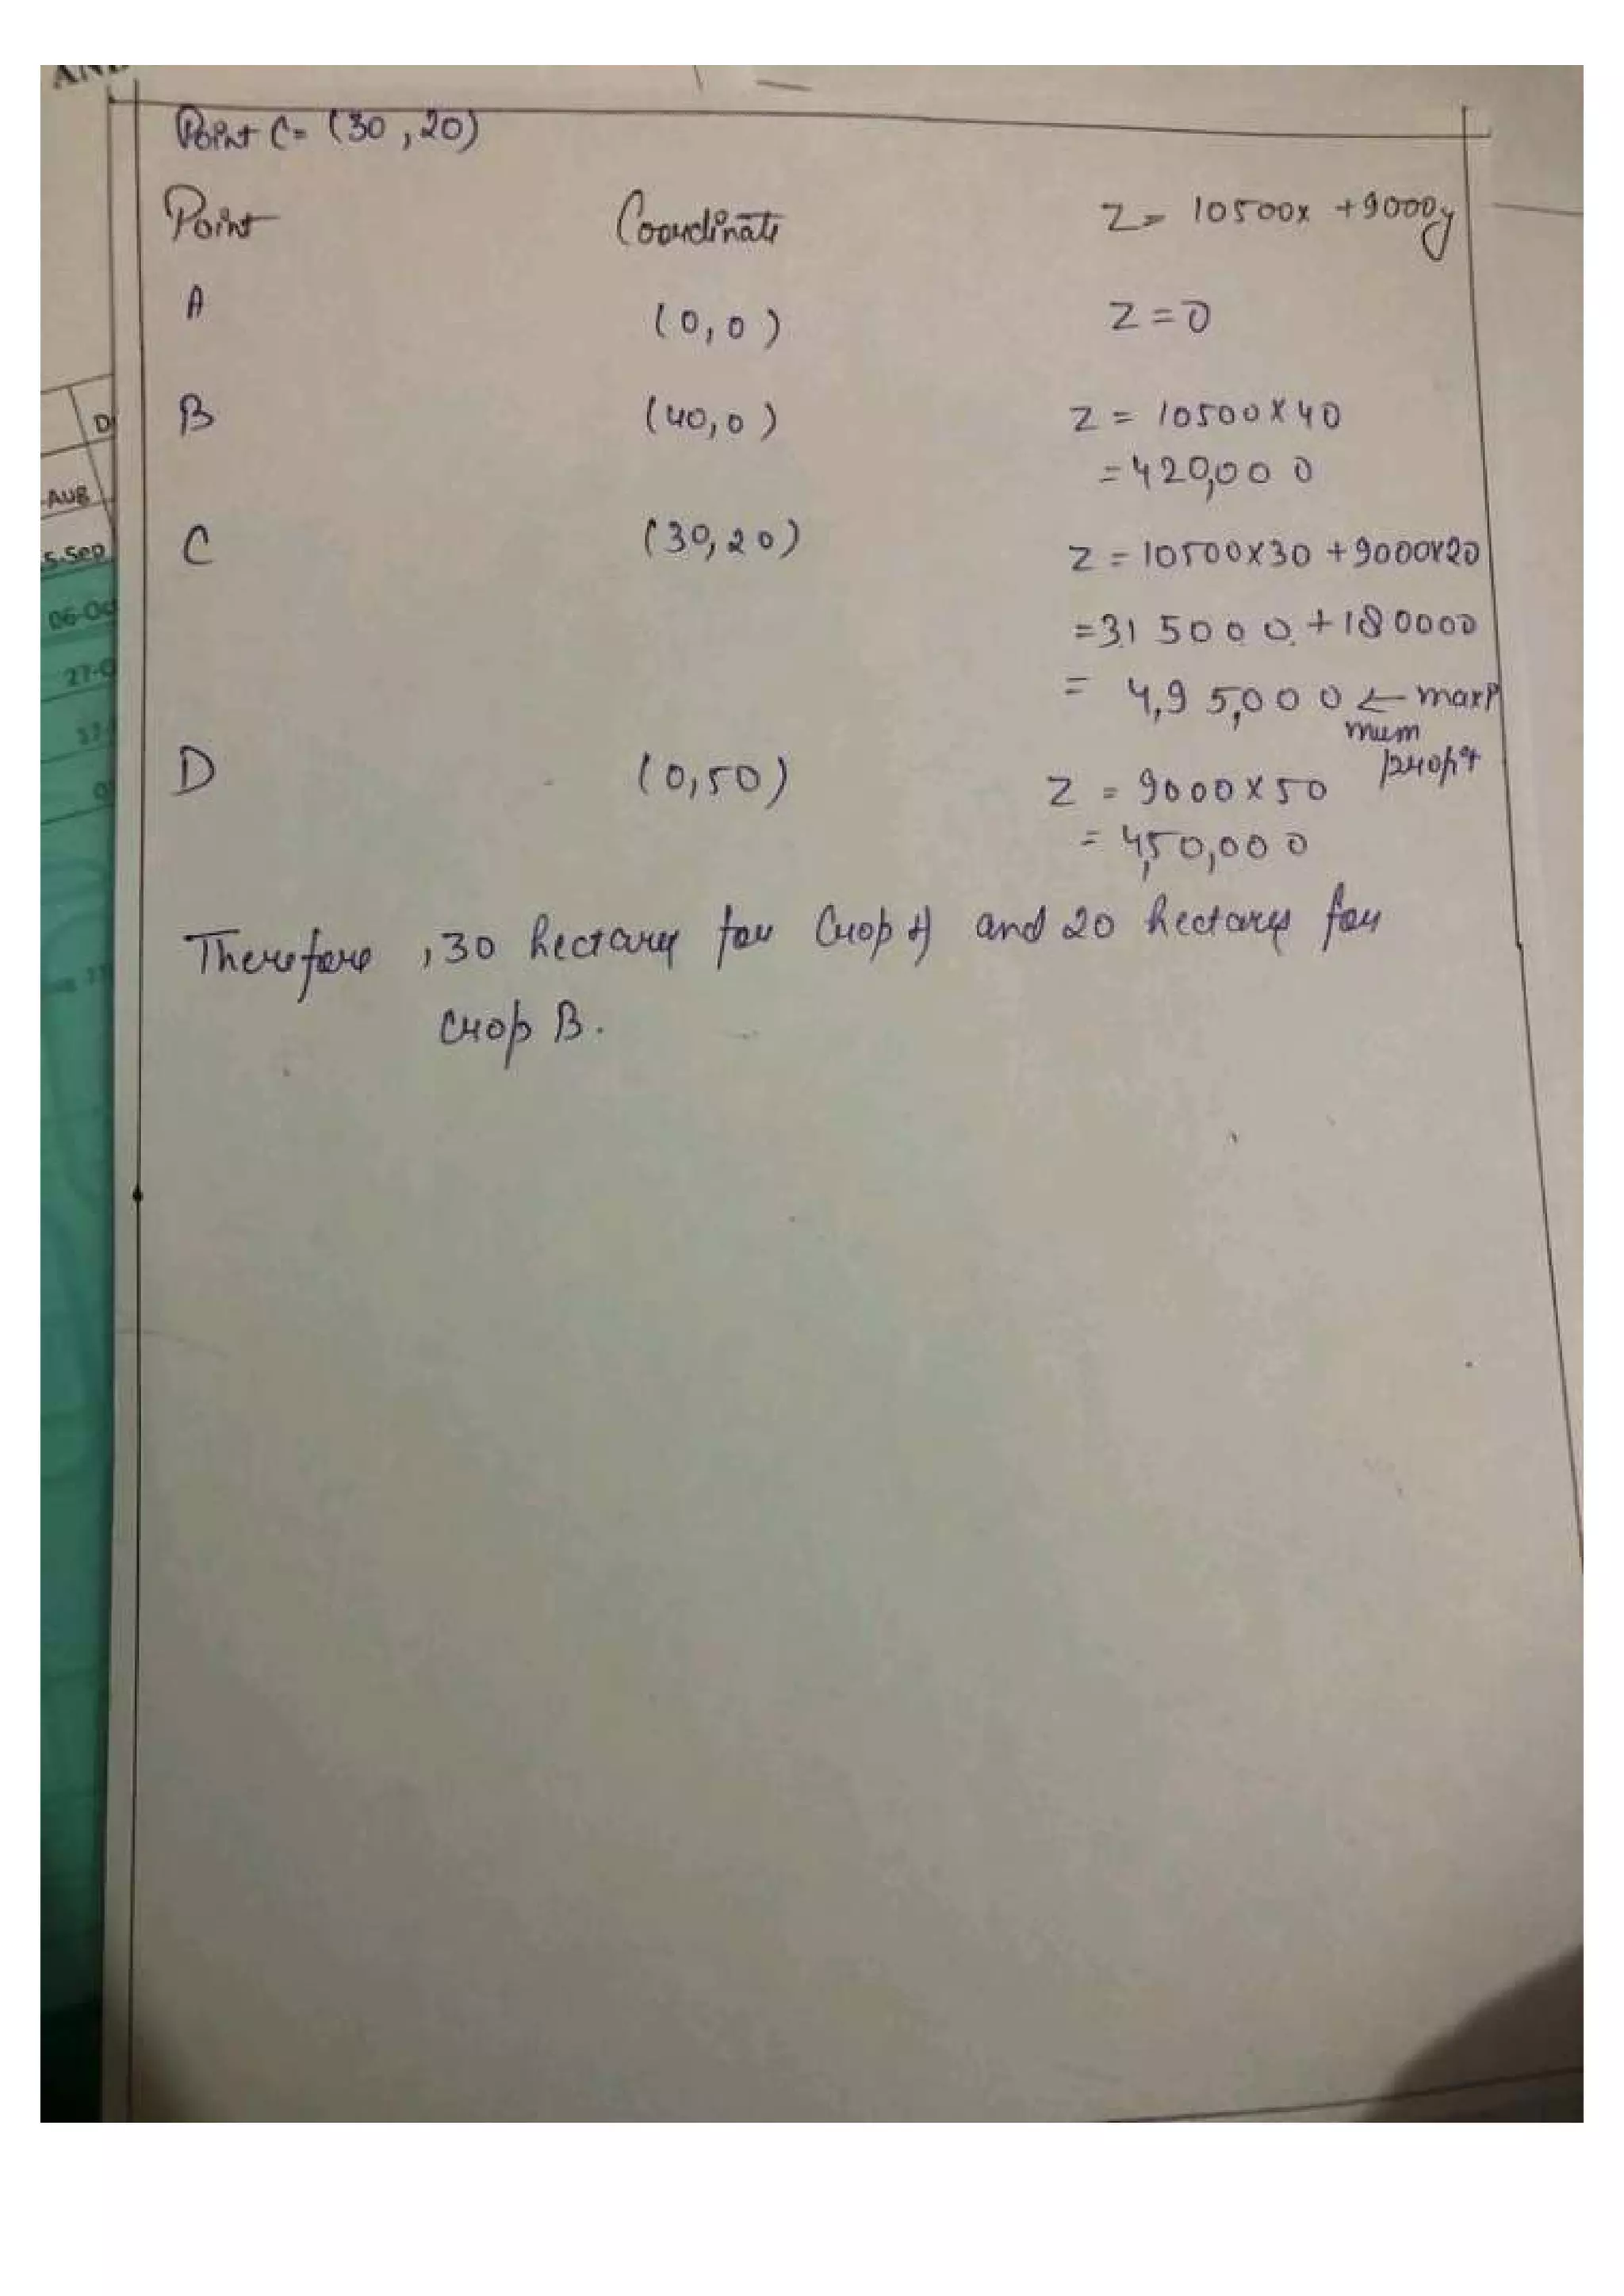 Point C = (30, 20)
Point Coordinate Z = 10500x + 9000y
A (0,0) Z = 0
B (40,0) Z = 10500 x 40
= 420,000
C (30,20) Z = 10500x30 + 9000x20
= 315000 + 180000
= 4,95,000 ← maxi
mum
D (0,50) Z = 9000 x 50 profit
= 4,50,000
Therefore, 30 hectares for Crop A and 20 hectares for
crop B.
D
-Aug
5-Sep
06-Oc
27-O